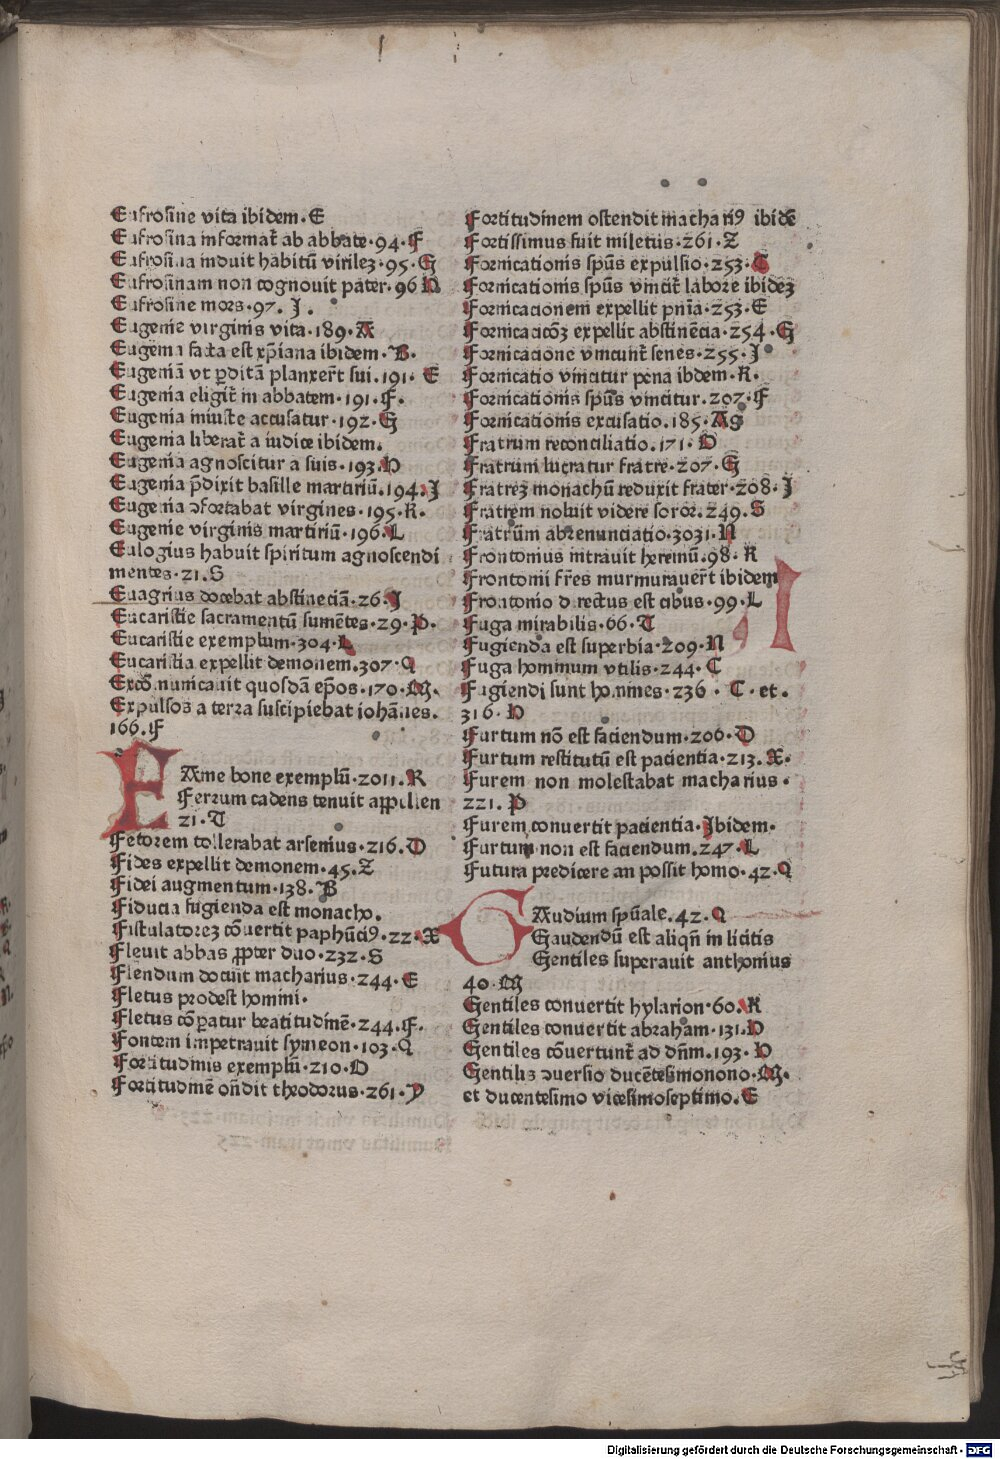 Eufrosine vita ibidem. E
Eufrosina informat᷑ ab abbate. 94. F
Eufrosina induit habitū virilez. 95. G
Eufrosinam non cognouit pater. 96 H
Eufrosine mors. 97. J.
Eugenie virginis vita. 189. A
Eugenia facta est xp̄iana ibidem. B.
Eugeniā vt ꝑditā planxer̄t sui. 191. E
Eugenia eligit᷑ in abbatem. 191. F.
Eugenia iniuste accusatur. 192. G
Eugenia liberat᷑ a iudice ibidem.
Eugenia agnoscitur a suis. 193 H
Eugenia p̄dixit basille martiriū. 194. J
Eugenia ↄfortabat virgines. 195. K.
Eugenie virginis martiriū. 196. L
Eulogius habuit spiritum agnoscendi
mentes. 21. S
Euagrius docebat abstineciā. 26. J
Eucaristie sacramentū sumētes. 29. P.
Eucaristie exemplum. 304. L
Eucaristia expellit demonem. 307. Q
Excōmunicauit quosdā ep̄os. 170. M.
Expulsos a terra suscipiebat iohānes.
166. F
FAme bone exemplū. 2011. R
Ferrum cadens tenuit
21. T
Fetorem tollerabat arsenius. 216. D
Fides expellit demonem. 45. Z
Fidei augmentum. 138. B
Fiducia fugienda est monacho.
Fistulatorez cōuertit paphūciꝰ. 22. X
Fleuit abbas ꝓpter duo. 232. S
Flendum docuit macharius. 244. E
Fletus prodest homini.
Fletus cōꝑatur beatitudinē. 244. F.
Fontem impetrauit symeon. 103. Q
Fortitudinis exemplū. 210. O
Fortitudinē oñdit theodorus. 261. Y
Fortitudinem ostendit machariꝰ ibidē
Fortissimus fuit miletus. 261. Z
Fornicationis spūs expulsio. 253. C
Fornicationis spūs vincit᷑ labore ibidez
Fornicacionem expellit pn̄ia. 253. E
Fornicaciōz expellit abstinēcia. 254. G
Fornicacione vincunt᷑ senes. 255. J
Fornicatio vincitur pena ibdem. K.
Fornicationis spūs vincitur. 207. F
Fornicationis excusatio. 185. Ag
Fratrum reconciliatio. 171. O
Fratrum lucratur fratrē. 207. G
Fratrez monachū reduxit frater. 208. J
Fratrem noluit videre soror. 249. S
Fratrum abrenunciatio. 3031. N
Frontonius intrauit heremū. 98. K
Frontonii fr̄es murmurauer̄t ibidem
Frontonio directus est cibus. 99. L
Fuga mirabilis. 66. T
Fugienda est superbia. 209. N
Fuga hominum vtilis. 244. C
Fugiendi sunt homines. 236. C. et.
316. H
Furtum nō est faciendum. 206. D
Furtum restitutū est pacientia. 213. X.
Furem non molestabat macharius.
221. P
Furem conuertit pacientia. Jbidem.
Furtum non est faciendum. 247. L
Futura predicere an possit homo. 42. Q
GAudium spūale. 42. Q
Gaudendū est aliqñ in licitis
Gentiles superauit anthonius
40. M
Gentiles conuertit hylarion. 60. R
Gentiles conuertit abraham. 131. H
Gentiles cōuertunt᷑ ad dñm. 193. H
Gentiliū ↄuersio ducētesimonono. M.
et ducentesimo vicesimoseptimo. E
Digitalisierung gefördert durch die Deutsche Forschungsgemeinschaft - DFG